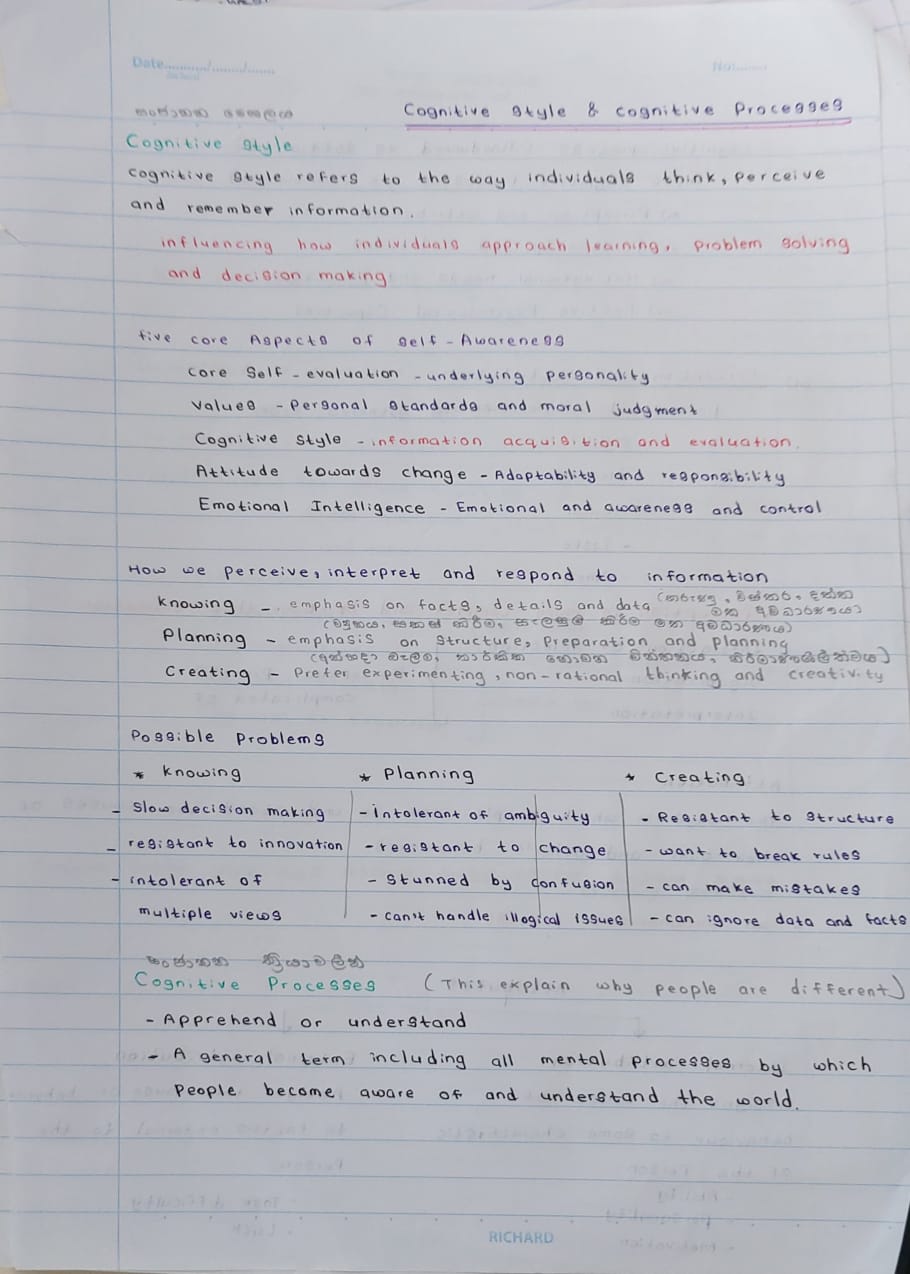 Date............/........./.......
No:.......
Cognitive style & cognitive Processes
Cognitive style
cognitive style refers to the way individuals think, perceive
and remember information.
influencing how individuals approach learning, problem solving
and decision making
five core Aspects of self - Awareness
core Self - evaluation - underlying personality
Values - Personal standards and moral judgment
Cognitive style - information acquisition and evaluation.
Attitude towards change - Adaptability and responsibility
Emotional Intelligence - Emotional and awareness and control
How we perceive, interpret and respond to information
(කරුණු, විස්තර, දත්ත
knowing - emphasis on facts, details and data
Planning - emphasis on structure, preparation and planning
Creating - Prefer experimenting, non-rational thinking and creativity
Possible Problems
* knowing * Planning * Creating
- Slow decision making - Intolerant of ambiguity - Resistant to structure
- resistant to innovation - resistant to change - want to break rules
- intolerant of - Stunned by confusion - can make mistakes
multiple views - can't handle illogical issues - can ignore data and facts
සංජානන ක්‍රියාවලීන්
Cognitive Processes (This explain why people are different)
- Apprehend or understand
- A general term including all mental processes by which
People become aware of and understand the world.
RICHARD